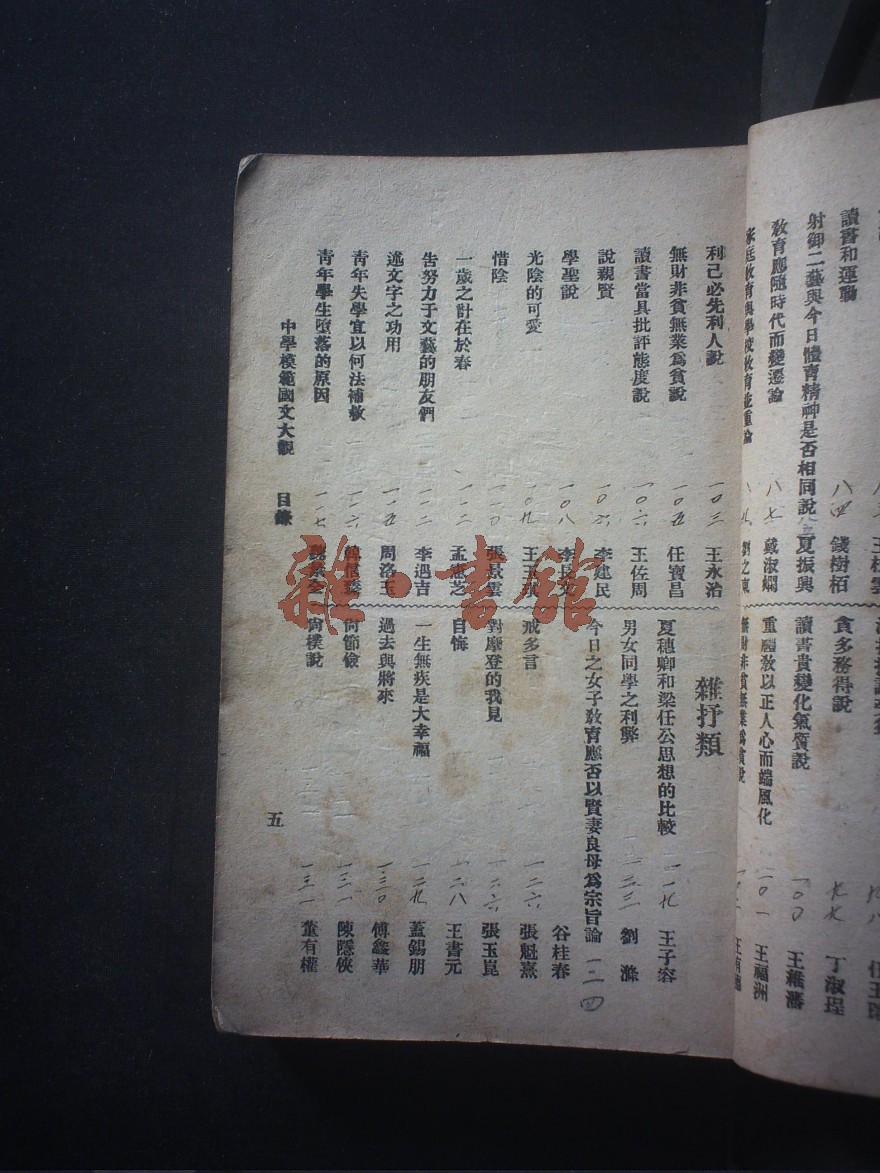 讀書和運動 八四 錢樹栢
射御二藝與今日體育精神是否相同說 夏振興
教育應隨時代而變遷論 八七 戴淑嫻
家庭教育與學校教育並重論
貪多務得說 九七 丁淑珵
讀書貴變化氣質說 一〇〇 王維藩
重禮教以正人心而端風化 一〇一 王福洲
無財非貧無業為貧說
利己必先利人說 一〇三 王永治
無財非貧無業為貧說 一〇五 任寶昌
讀書當具批評態度說 一〇六 王佐周
說親賢 一〇六 李建民
學聖說 一〇八 李長
光陰的可愛 一〇九 王玉
惜陰 一一〇 張景雲
一歲之計在於春 一一二 孟憲芝
告努力于文藝的朋友們 一一二 李遇吉
述文字之功用 一一五 周洛玉
青年失學宜以何法補救 一一六
青年學生墮落的原因 一一七
雜抒類
夏穗卿和梁任公思想的比較 一一九 王子容
男女同學之利弊 一二三 劉滌
今日之女子教育應否以賢妻良母為宗旨論 一二四 谷桂春
戒多言 一二六 張魁熹
對摩登的我見 一二六 張玉崑
自悔 一二八 王書元
一生無疾是大幸福 一二九 蓋錫朋
過去與將來 一三〇 傅鑫華
尚節儉 一三一 陳隱俠
尚樸說 一三一 董有權
中學模範國文大觀 目錄
五
雜·書館